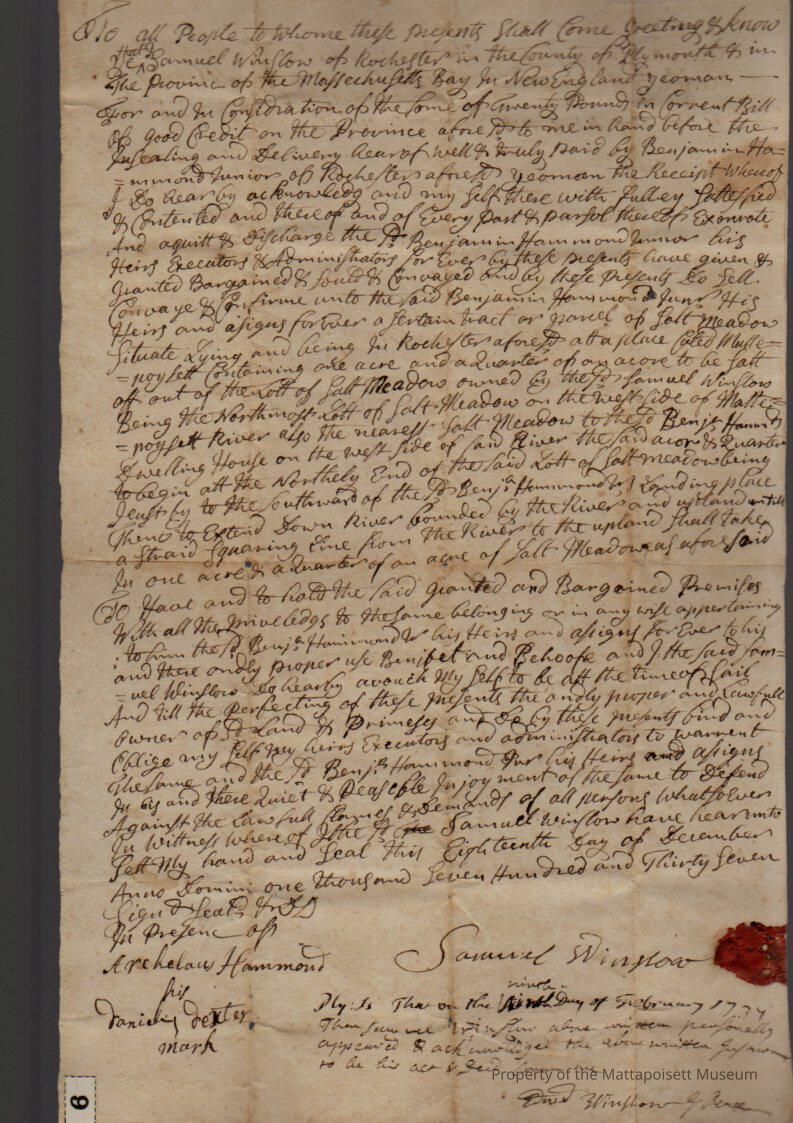 To all People to whome these presents Shall Come Greeting & know
Ye that I Samuel Winslow of Rochester in the County of Plymouth & in
The Province of the Massechusitts Bay In New England yeoman
For and In Considration of the Some of Twenty Pounds in Corrent Bill
Of good Credit on the Province afores:d to me in hand before the
Insealing and Delivery hearof well & truly paid by Benjamin Ha=
=mmond Junior of Rochester afores:d yeoman the Receipt whereof
I Do hear by acknowledg and my self there with fulley Sattesfied
& Contented and thereof and of Every part & parsol thereof Exonrate
And aquitt & Discharge the s:d Benjamin Hammond Junior his
Heirs Executors & Administrators for Ever by these presents have given &
Granted Bargained & Sould & Convayed and by these presents Do Sell
Convaye & Confirme unto the said Benjamin Hammond Jun:r His
Heirs and asigns forever a sertain tract or parcel of Salt meadow
Situate Lying and being In Rochester afores:d att a place Caled Matte=
=poysett Containing one acre and a quarter of an acore to be Sett
off out of the Lott of Salt Meadow owned by the s:d Samuel Winslow
Being the Northmost Lott of Salt Meadow on the west side of Matte=
=poysett River also the nearess Salt Meadow to the s:d Benj:a Hammonds
Dwelling House on the west side of said River the said acor & Quarter
to begin att the Northely End of the said Lott of Salt meadow being
Jeust by to the Southward of the s:d Benj:a Hammond Landing place
Then to Extend Down River bounded by the River and upland untill
a Straid Squaring Line from the River to the upland Shall take
In one acre & a quarter of an acre of Salt Meadow as afore said
To Have and to hold the said granted and Bargained Premises
With all the priveledgs to the same belonging or in any wise appertaining
to him the s:d Benj:a Hammond Jr his Heirs and asigns for Ever to his
and there ondly proper use Benifet and Behoofe and I the said Sam=
=uel Winslow Do hearby avouch my self to be att the time of Sail
And till the perfecting of these presents the ondly proper and Lawfull
owner of s:d Land & Primeses and do by these presents bind and
Oblige my self my heirs Executors and administrators to warrent
the same and the s:d Benj:a Hammond Jur his Heirs and asigns
In his and there Quiet & Peaseble Injoyment of the same to Defend
Against the Lawfull Claimes & Demands of all persons whatsoEver
In Wittness where of I the s:d Samuel Winslow have hear unto
Sett My hand and Seal this Eighteenth Day of December
Anno Domini one thousand Seven Hundred and Thirty Seven
Sign:d Seal:d & DD
In Presenc off
Archelaus Hammond
Samuel Winslow
his
daniel dexter
mark
Ply: Is That on the ninth Day of February 1737
Then Samuel Winslow above written personally
appeared & acknowledged the above written Instrument
to be his act & Deed
Edwd Winslow J Peace
6
Property of the Mattapoisett Museum